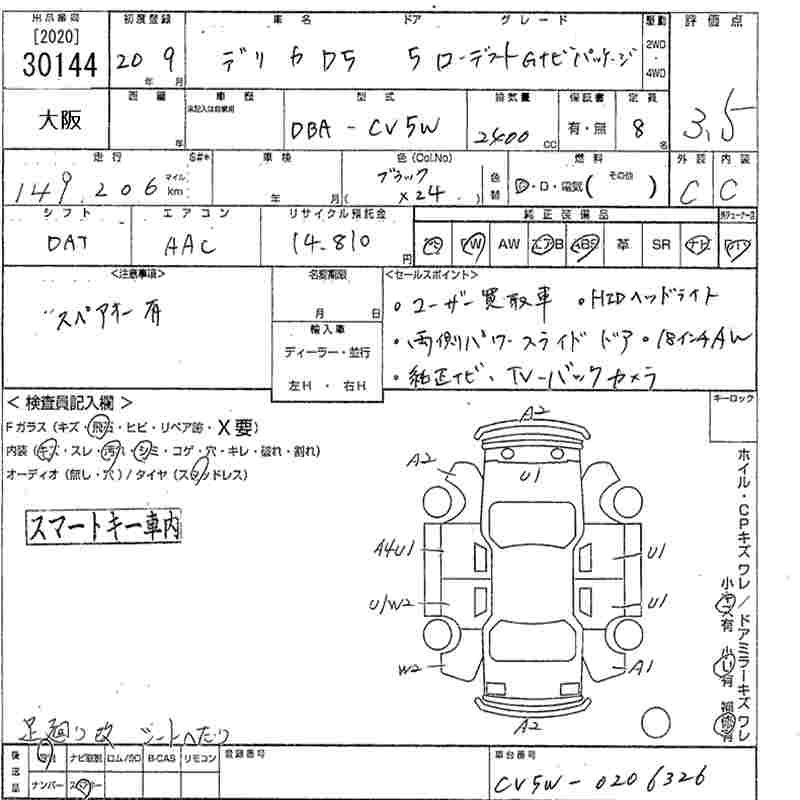 出品番号 初度登録 車名 ドア グレード 駆動 評価点
[2020]
30144
20 9
年 月
デリカ D5 5 ローデストGナビパッケージ
2WD
・
4WD
3.5
大阪
年
車歴
型式 排気量 保証書 定員
DBA - CV5W
2400 CC
有・無
8 名
走行 車検 色(Col.No) 燃料 外装 内装
149,206
マイル
km
年 月
ブラック
( X24 )
色替
・D・電気( その他 )
C C
シフト エアコン リサイクル預託金 純正装備品
DAT AAC 14.810 円
PS PW AW エアB ABS 革 SR ナビ TV
<注意事項> 名変期限 <セールスポイント>
スペアキー有
月 日
・ユーザー買取車 ・HIDヘッドライト
輸入車
ディーラー・並行
左H ・ 右H
・両側パワースライドドア・18インチAW
・純正ナビ、TV-バックカメラ
<検査員記入欄>
キーロック
Fガラス(キズ・飛石・ヒビ・リペア跡・X要)
内装(キズ・スレ・汚れ・シミ・コゲ・穴・キレ・破れ・割れ)
オーディオ(無し・穴)/タイヤ(スタッドレス)
スマートキー車内
A2
A2
U1
A4U1
U1
U/W2
U1
W2
A1
A2
ホイル・CPキズワレ/ドアミラーキズワレ
足廻り改 シートヘたり
後送品
ナビ取説 ロム/CD B-CAS リモコン
ナンバー
登録番号
車台番号
CV5W-0206326